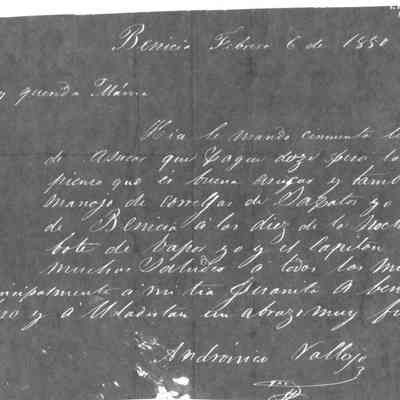 Benicia Febrero 6 de 1850
querida Máma
Hia le mando cinquenta
de asucar que pague doze pero
pienso que es buena asucar y tamb
manejo de correqas de Sapatos yo
de Benicia á las diez de la noch
bote de vapor yo y el capitan
muchos Saludes á todos los m
ncipalmente á mi tia Juanita á ben
ro y á Uladislau un abrazo muy fu
Andronico Vallejo